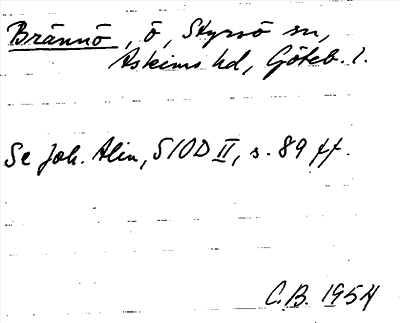 Brännö, ö, Styrsö sn,
Askims hd, Göteb. l.
Se Joh. Alin, SIOD II, s. 89 ff.
C.B. 1954